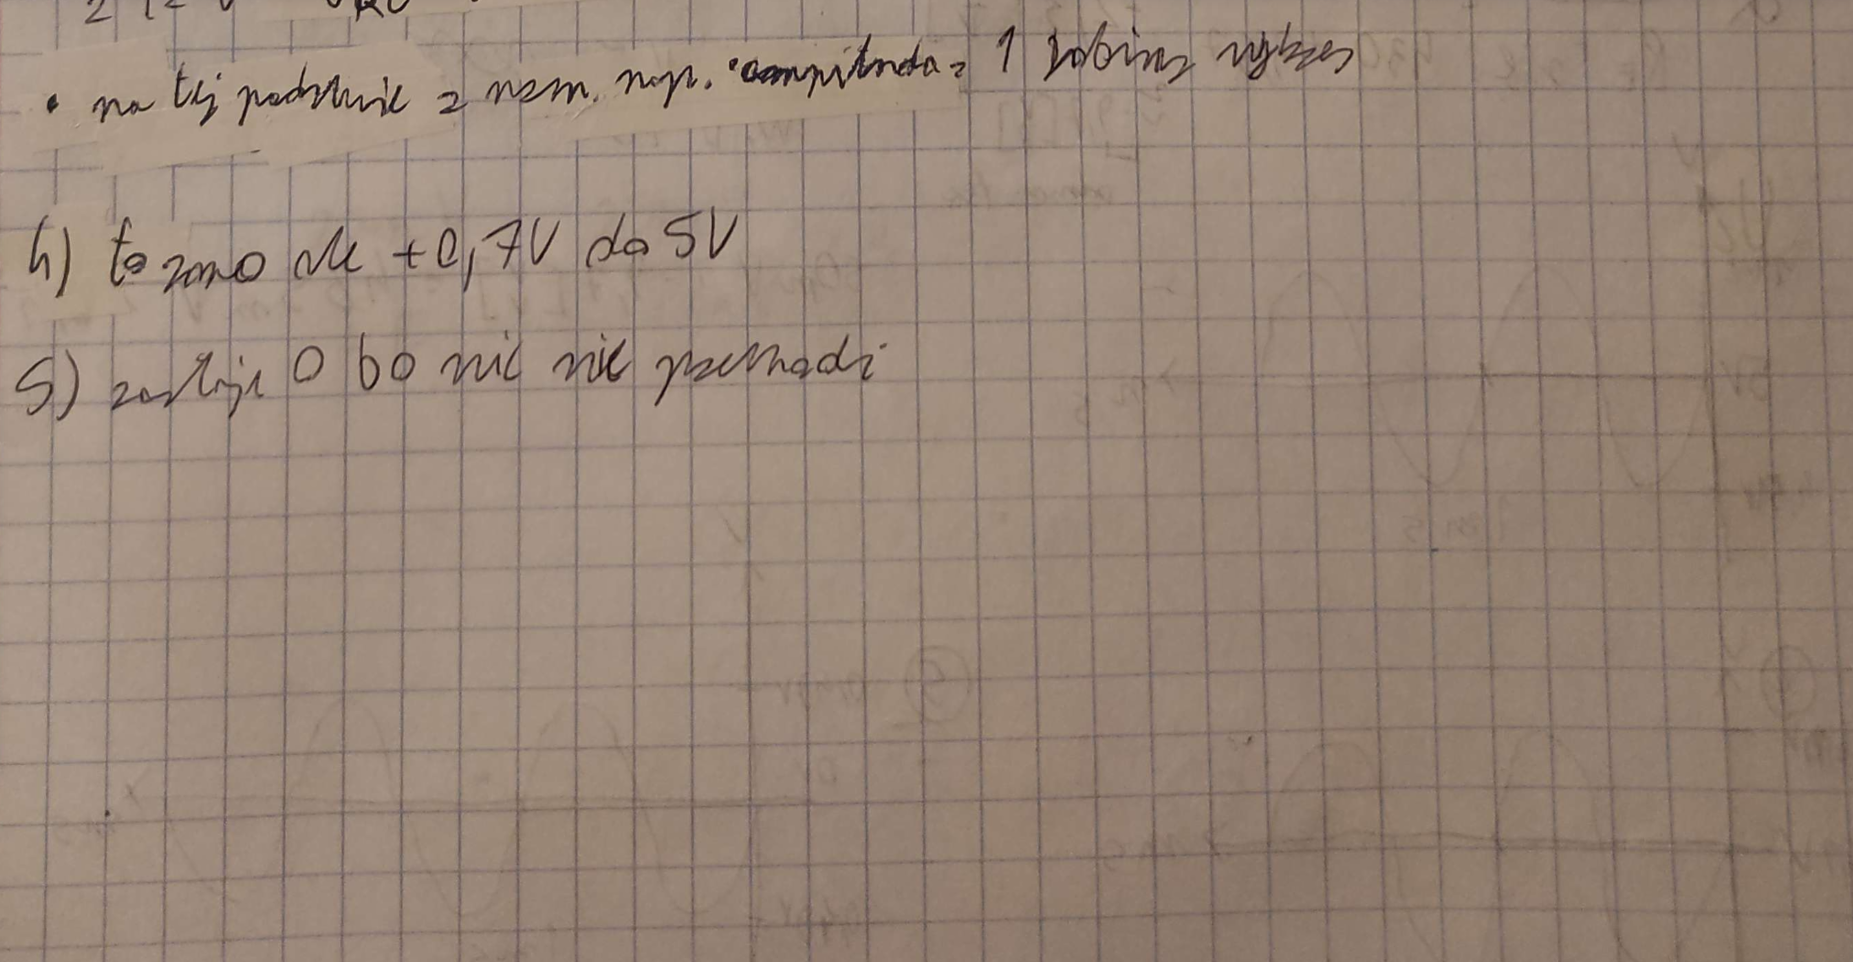 • na tej podstawie z wzm. nap. amplituda = 1 robimy wykres
4) to samo ale +0,7V do 5V
5) zostaje 0 bo nic nie przechodzi